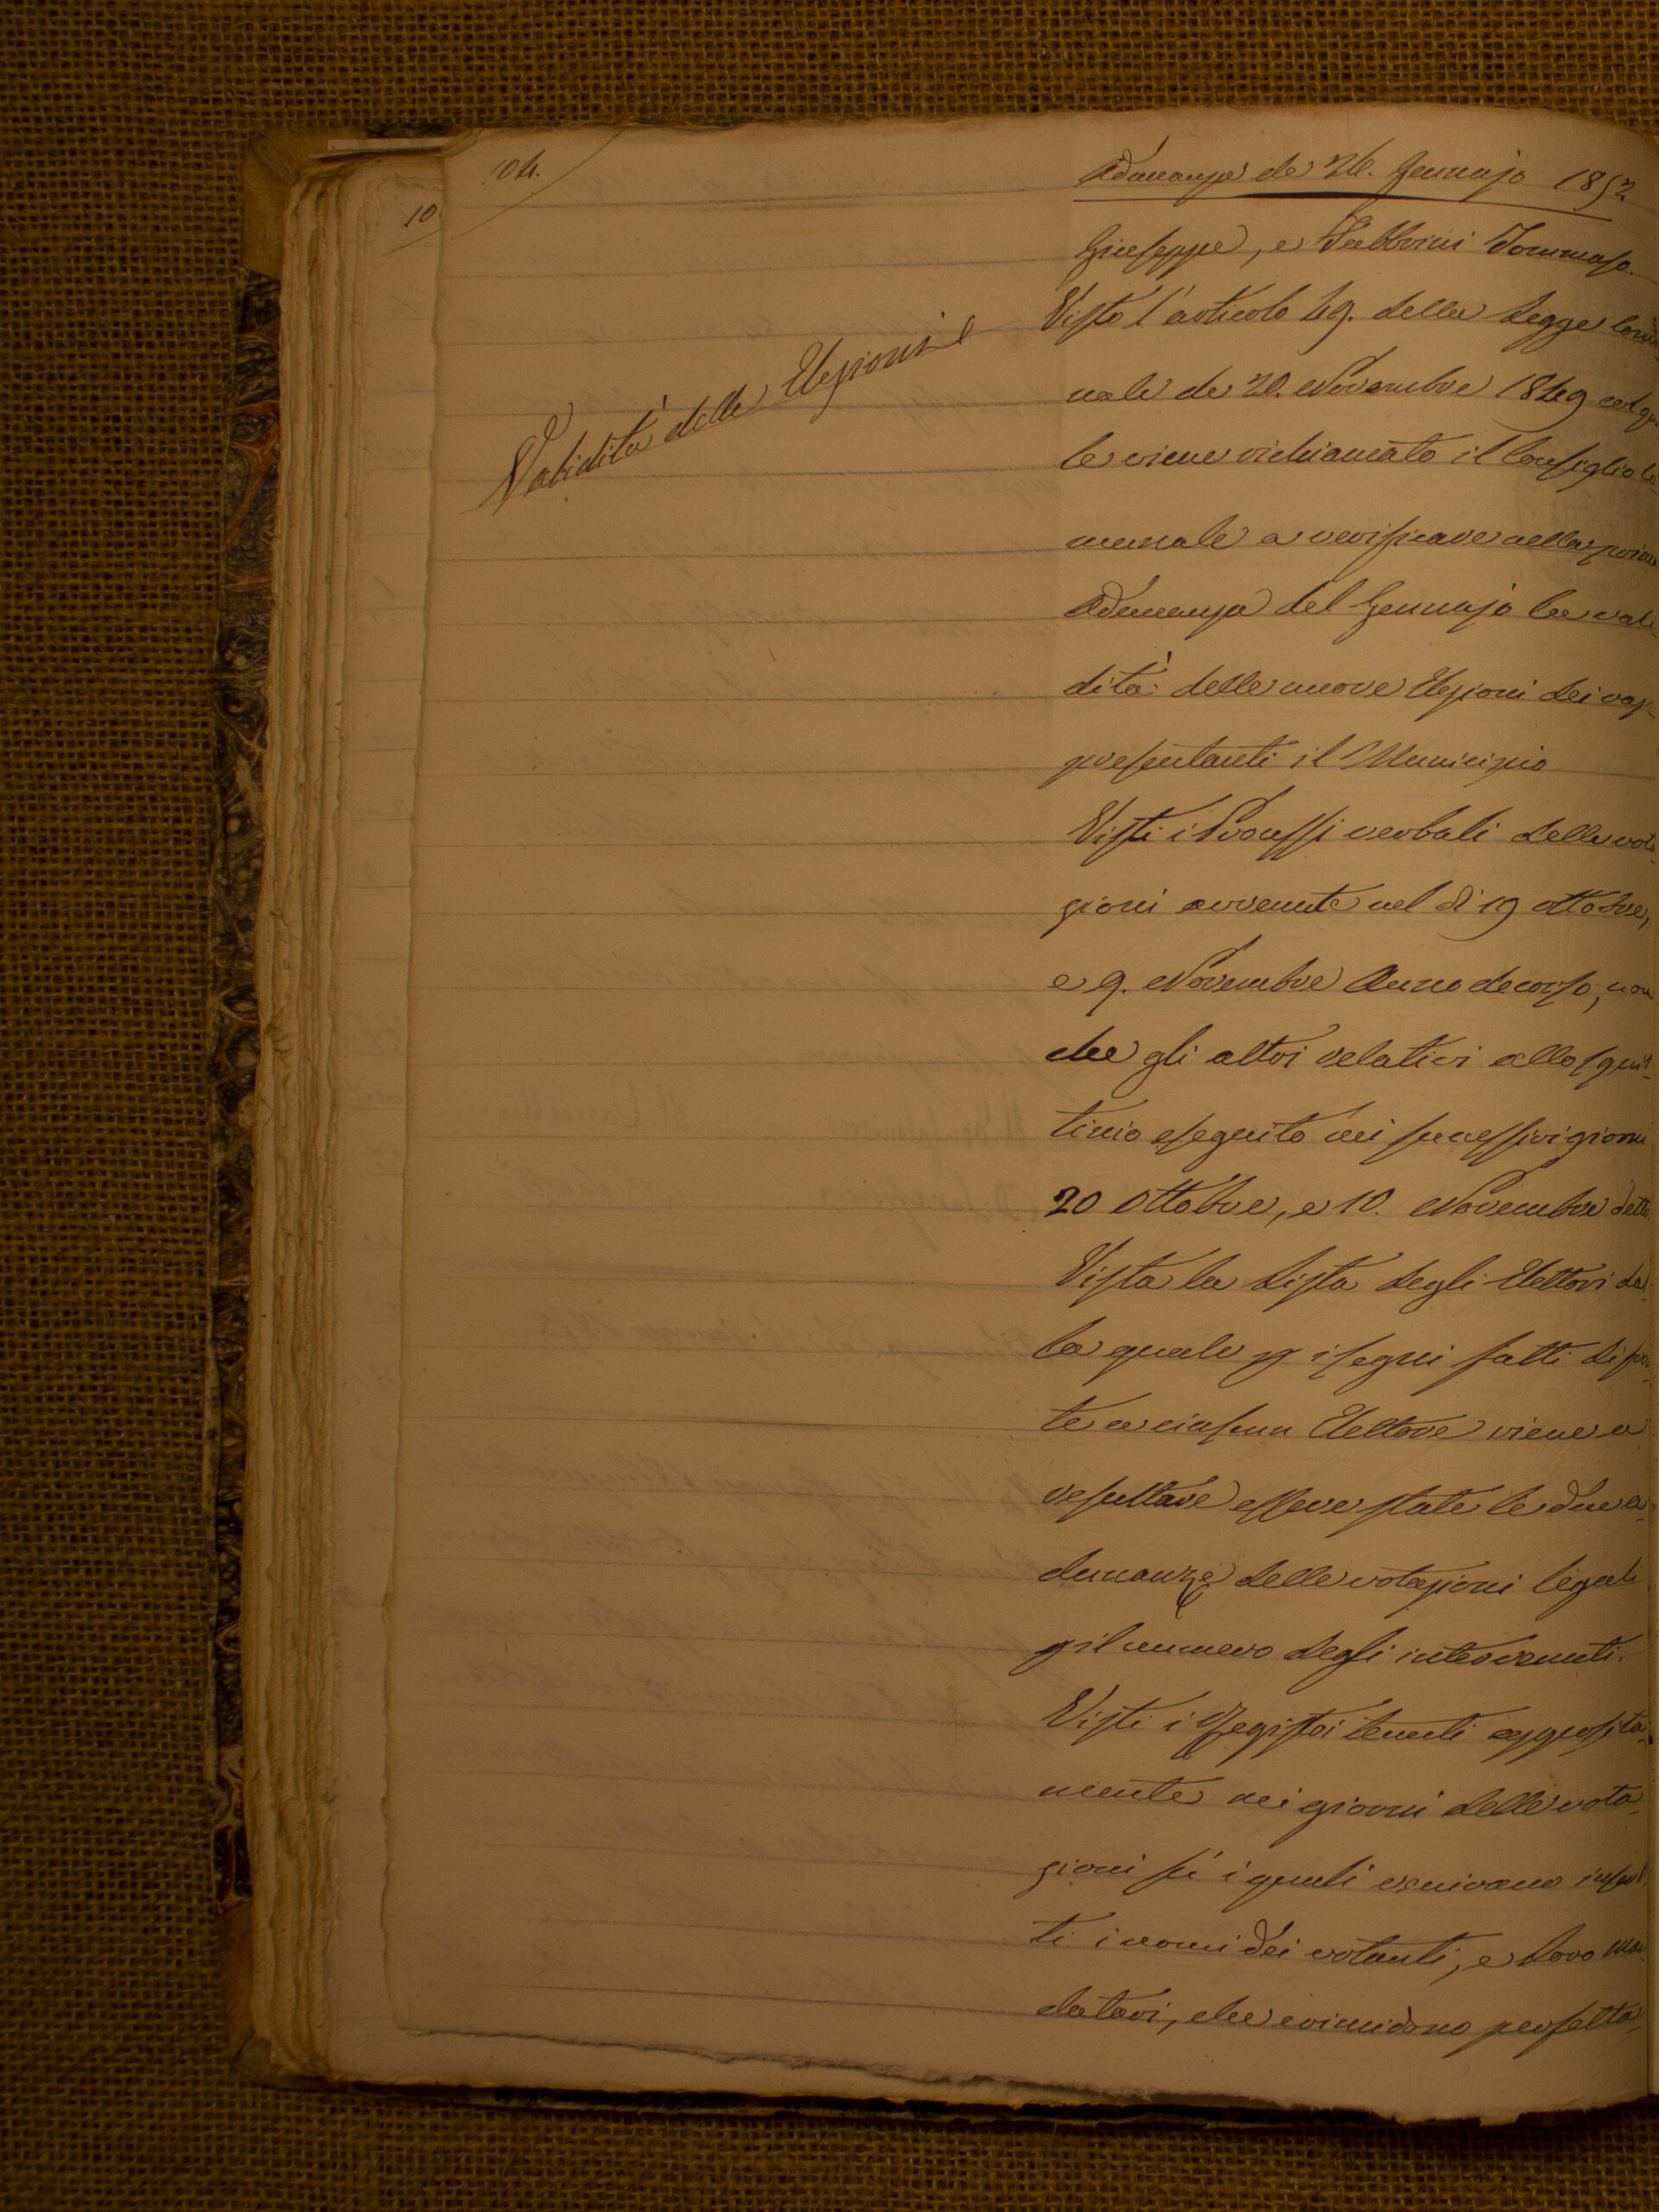 104.
10
Adunanza de 26. Gennajo 1852
Giuseppe, e Fabbrini Tommaso.
Validità delle Elezioni
Visto l'articolo 49. della Legge Comu
nale de 20. Novembre 1849 col qua
le viene richiamato il Consiglio Co-
munale a verificare nella prima
Adunanza del Gennajo la vali
dità delle nuove Elezioni dei rap-
presentanti il Municipio
Visti i Processi verbali delle vota
zioni avvenute nel dì 19 ottobre,
e 9. Novembre Anno decorso, non
che gli altri relativi allo squit-
tinio eseguito nei successivi giorni
20 Ottobre, e 10. Novembre detto
Vista la Lista degli Elettori dal-
la quale p i segni fatti di fron-
te a ciascun Elettore viene a
resultare essere state le due a-
dunanze delle votazioni legali
p il numero degli intervenuti.
Visti i Registri tenuti apposita-
mente nei giorni delle vota-
zioni su i quali venivano inscrit
ti i nomi dei votanti, e loro man
datari, che coincidono perfetta-